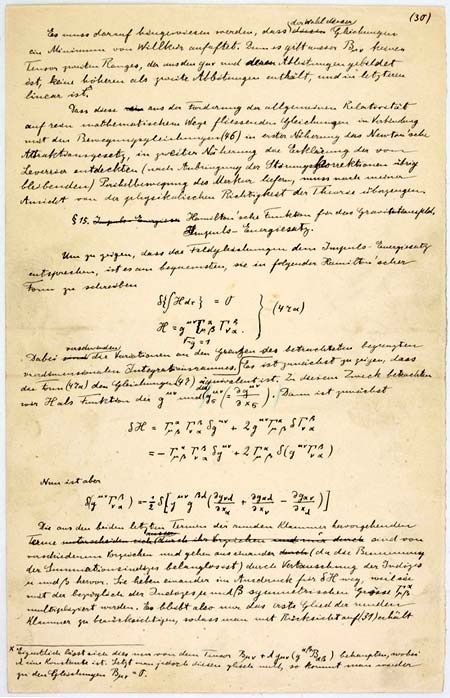 (30)
der Wahl dieser
Es muss darauf hingewiesen werden, dass diesen Gleichungen
ein Minimum von Willkür anhaftet. Denn es gibt ausser Bμν keinen
Tensor zweiten Ranges, der aus den gμν und deren Ableitungen gebildet
ist, keine höheren als zweite Ableitungen enthält, und in letzteren
linear ist.x
Dass diese aus der Forderung der allgemeinen Relativität
auf rein mathematischem Wege fliessenden Gleichungen in Verbindung
mit den Bewegungsgleichungen (46) in erster Näherung das Newton'sche
Attraktionsgesetz, in zweiter Näherung die Erklärung der von
Leverrier entdeckten (nach Anbringung der Störungskorrektionen übrig
bleibenden) Perihelbewegung des Merkur liefern, muss nach meiner
Ansicht von der physikalischen Richtigkeit der Theorie überzeugen.
§ 15. Impuls-Energiesatz Hamilton'sche Funktion für das Gravitationsfeld,
Impuls-Energiesatz.
Um zu zeigen, dass die Feldgleichungen dem Impuls-Energiesatz
entsprechen, ist es am bequemsten, sie in folgender Hamilton'scher
Form zu schreiben
δ{∫H dτ} = 0
H = g^μν Γ^α_μβ Γ^β_να } (47a)
√-g = 1
verschwinden
Dabei sind die Variationen an den Grenzen des betrachteten begrenzten
vierdimensionalen Integrationsraumes. Es ist zunächst zu zeigen, dass
die Form (47a) den Gleichungen (47) äquivalent ist. Zu diesem Zweck betrachten
wir H als Funktion der g^μν und der g^μν_σ (= ∂g^μν/∂x_σ). Dann ist zunächst
δH = Γ^α_μβ Γ^β_να δg^μν + 2 g^μν Γ^α_μβ δΓ^β_να
= - Γ^α_μβ Γ^β_να δg^μν + 2 Γ^α_μβ δ(g^μν Γ^β_να)
Nun ist aber
δ(g^μν Γ^β_να) = -½ δ[g^μν g^βλ (∂g_νλ/∂x_α + ∂g_αλ/∂x_ν - ∂g_αν/∂x_λ)]
Die aus den beiden letzten Termen der runden Klammer hervorgehenden
Terme sind von
verschiedenem Vorzeichen und gehen auseinander (da die Benennung
der Summationsindizes belanglos ist) durch Vertauschung der Indizes
μ und β hervor. Sie heben einander im Ausdruck für δH weg, weil sie
mit der bezüglich der Indizes μ und β symmetrischen Grösse Γ^α_μβ
multipliziert werden. Es bleibt also nur das erste Glied der runden
Klammer zu berücksichtigen, sodass man mit Rücksicht auf (31) erhält
x Eigentlich lässt sich dies nur von dem Tensor Bμν + λ gμν (g^αβ Bαβ) behaupten, wobei
λ eine Konstante ist. Setzt man jedoch diesen gleich null, so kommt man wieder
zu den Gleichungen Bμν = 0.